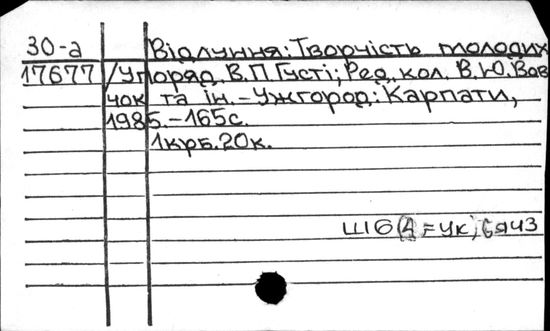 30-а Відлуння: Творчість молодих
17677 /Упоряд. В.П.Густі; Ред. кол. В.Ю.Вов
чок та ін.-Ужгород: Карпати,
1985.-165с.
1крб.20к.
Ш6(4=Ук)